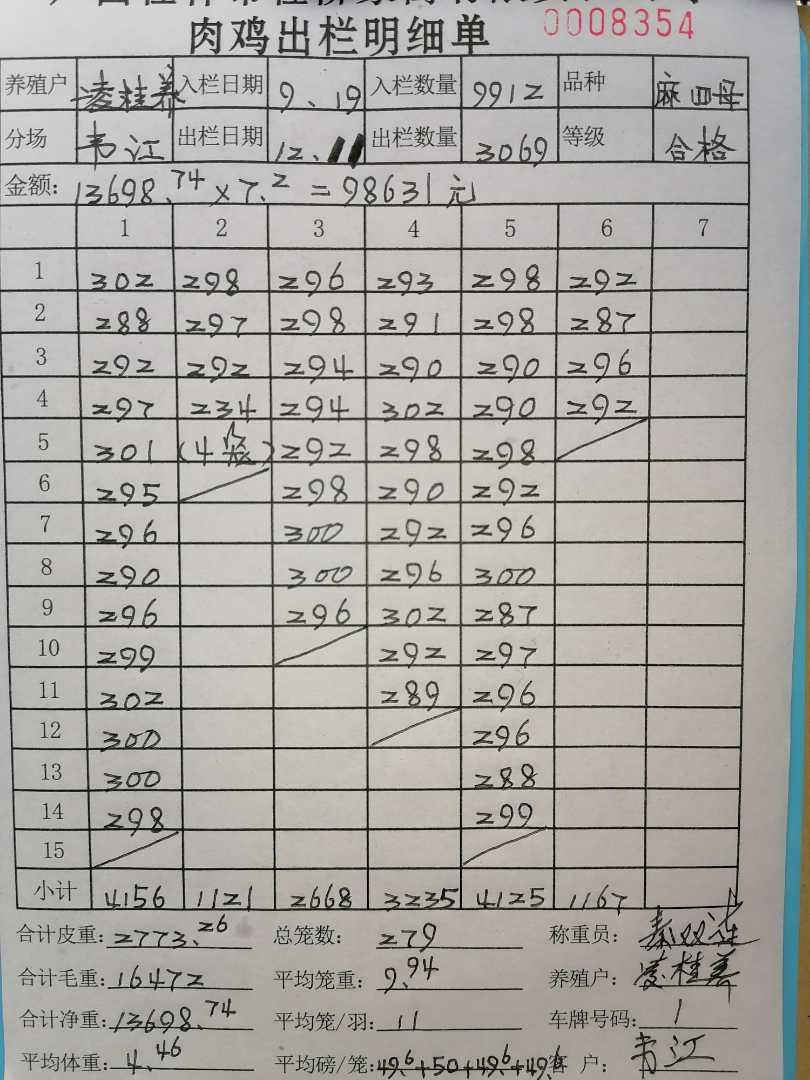 肉鸡出栏明细单 0008354
养殖户 凌桂养 入栏日期 9、19 入栏数量 9912 品种 麻四母
分场 韦江 出栏日期 12.11 出栏数量 3069 等级 合格
金额: 13698.74×7.2=98631元
1 2 3 4 5 6 7
1 302 298 296 293 298 292
2 288 297 298 291 298 287
3 292 292 294 290 290 296
4 297 234 294 302 290 292
5 301 (4笼) 292 298 298
6 295 298 290 292
7 296 300 292 296
8 290 300 296 300
9 296 296 302 287
10 299 292 297
11 302 289 296
12 300 296
13 300 288
14 298 299
15
小计 4156 1121 2668 3235 4125 1167
合计皮重: 2773.26 总笼数: 279 称重员:
合计毛重: 16472 平均笼重: 9.94 养殖户: 凌桂养
合计净重: 13698.74 平均笼/羽: 11 车牌号码: 1
平均体重: 4.46 平均磅/笼: 49.6+50+49.6+49.6 客 户: 韦江